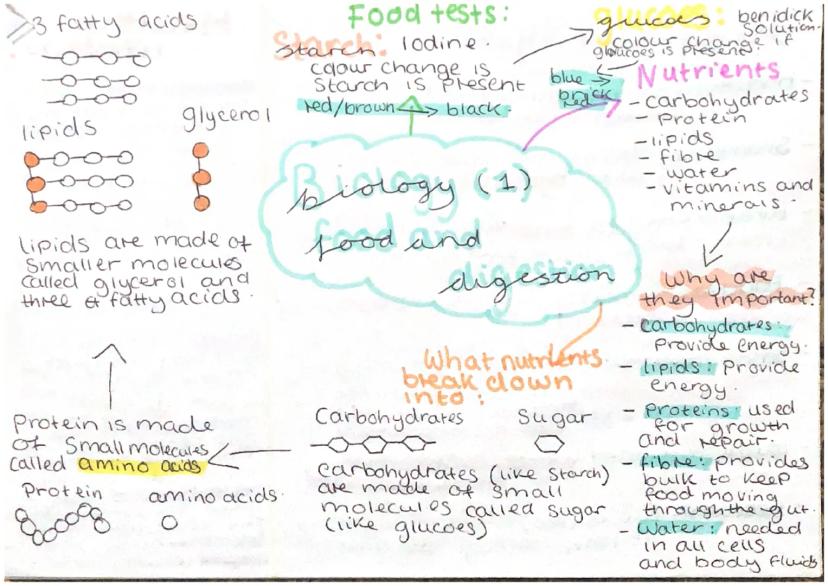 biology (1)
food and
digestion
Food tests:
Starch: Iodine.
colour change is
Starch is present
red/brown → black.
glucoes: benidick
solution.
colour change if
glucoes is present.
blue →
brick
red
Nutrients
- carbohydrates
- Protein
- lipids
- fibre
- water
- vitamins and
minerals.
Why are
they important?
- carbohydrates:
Provide energy.
- lipids: Provide
energy.
- Proteins: used
for growth
and repair.
- fibre: provides
bulk to keep
food moving
through the gut.
- Water: needed
in all cells
and body fluids
What nutrients
break down
into:
Carbohydrates Sugar
carbohydrates (like starch)
are made of small
molecules called sugar
(like glucoes)
Protein is made
of small molecules
called amino acids
Protein amino acids.
3 fatty acids
lipids glycerol
lipids are made of
smaller molecules
called glycerol and
three fatty acids.